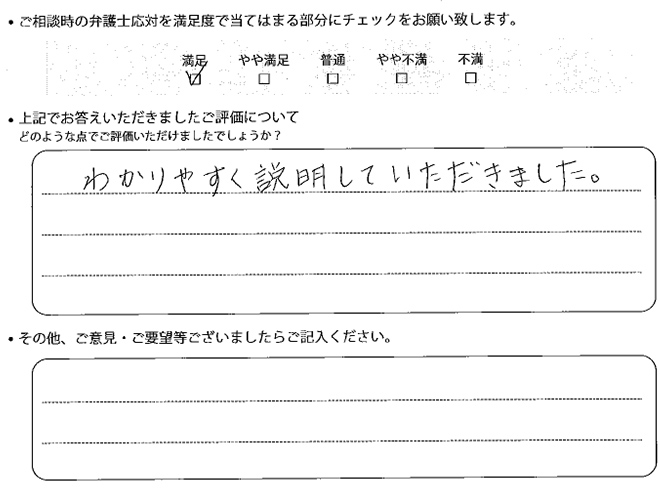 • ご相談時の弁護士応対を満足度で当てはまる部分にチェックをお願い致します。
満足 やや満足 普通 やや不満 不満
• 上記でお答えいただきましたご評価について
どのような点でご評価いただけましたでしょうか？
わかりやすく説明していただきました。
• その他、ご意見・ご要望等ございましたらご記入ください。